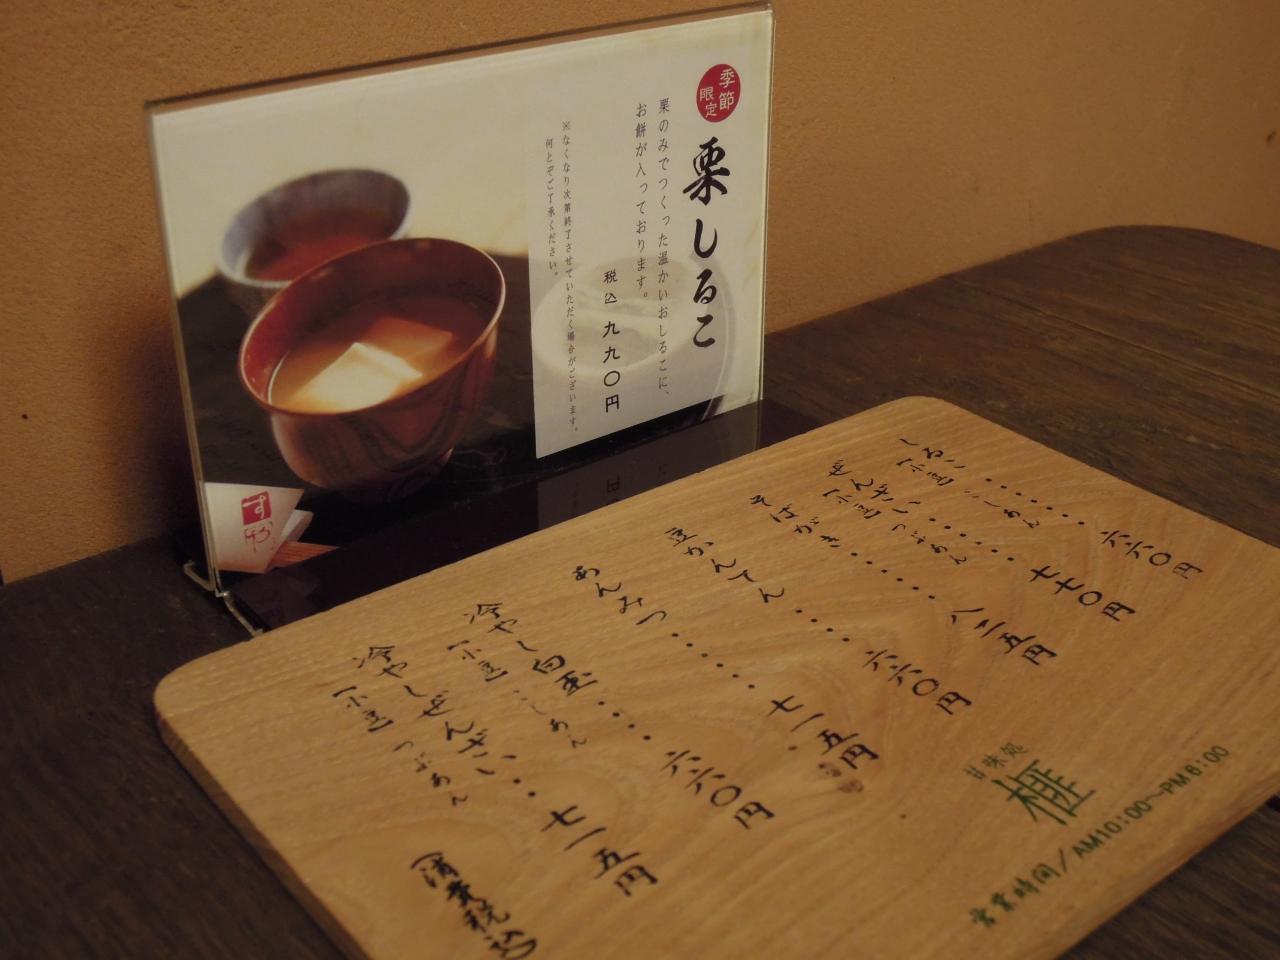 季節
限定
栗しるこ
栗のみでつくった温かいおしるこに、
お餅が入っております。
税込 九九〇円
※なくなり次第終了させていただく場合がございます。
何とぞご了承ください。
しるこ・・・・・・・六六〇円
【小豆】こしあん
ぜんざい・・・・・・七七〇円
【小豆】つぶあん
そばがき・・・・・・八二五円
豆かんてん・・・・・六六〇円
あんみつ・・・・・・七一五円
冷やし白玉・・・六六〇円
【小豆】こしあん
冷やしぜんざい・・七一五円
【小豆】つぶあん
(消費税込)
甘味処
榧
営業時間/AM10:00〜PM6:00